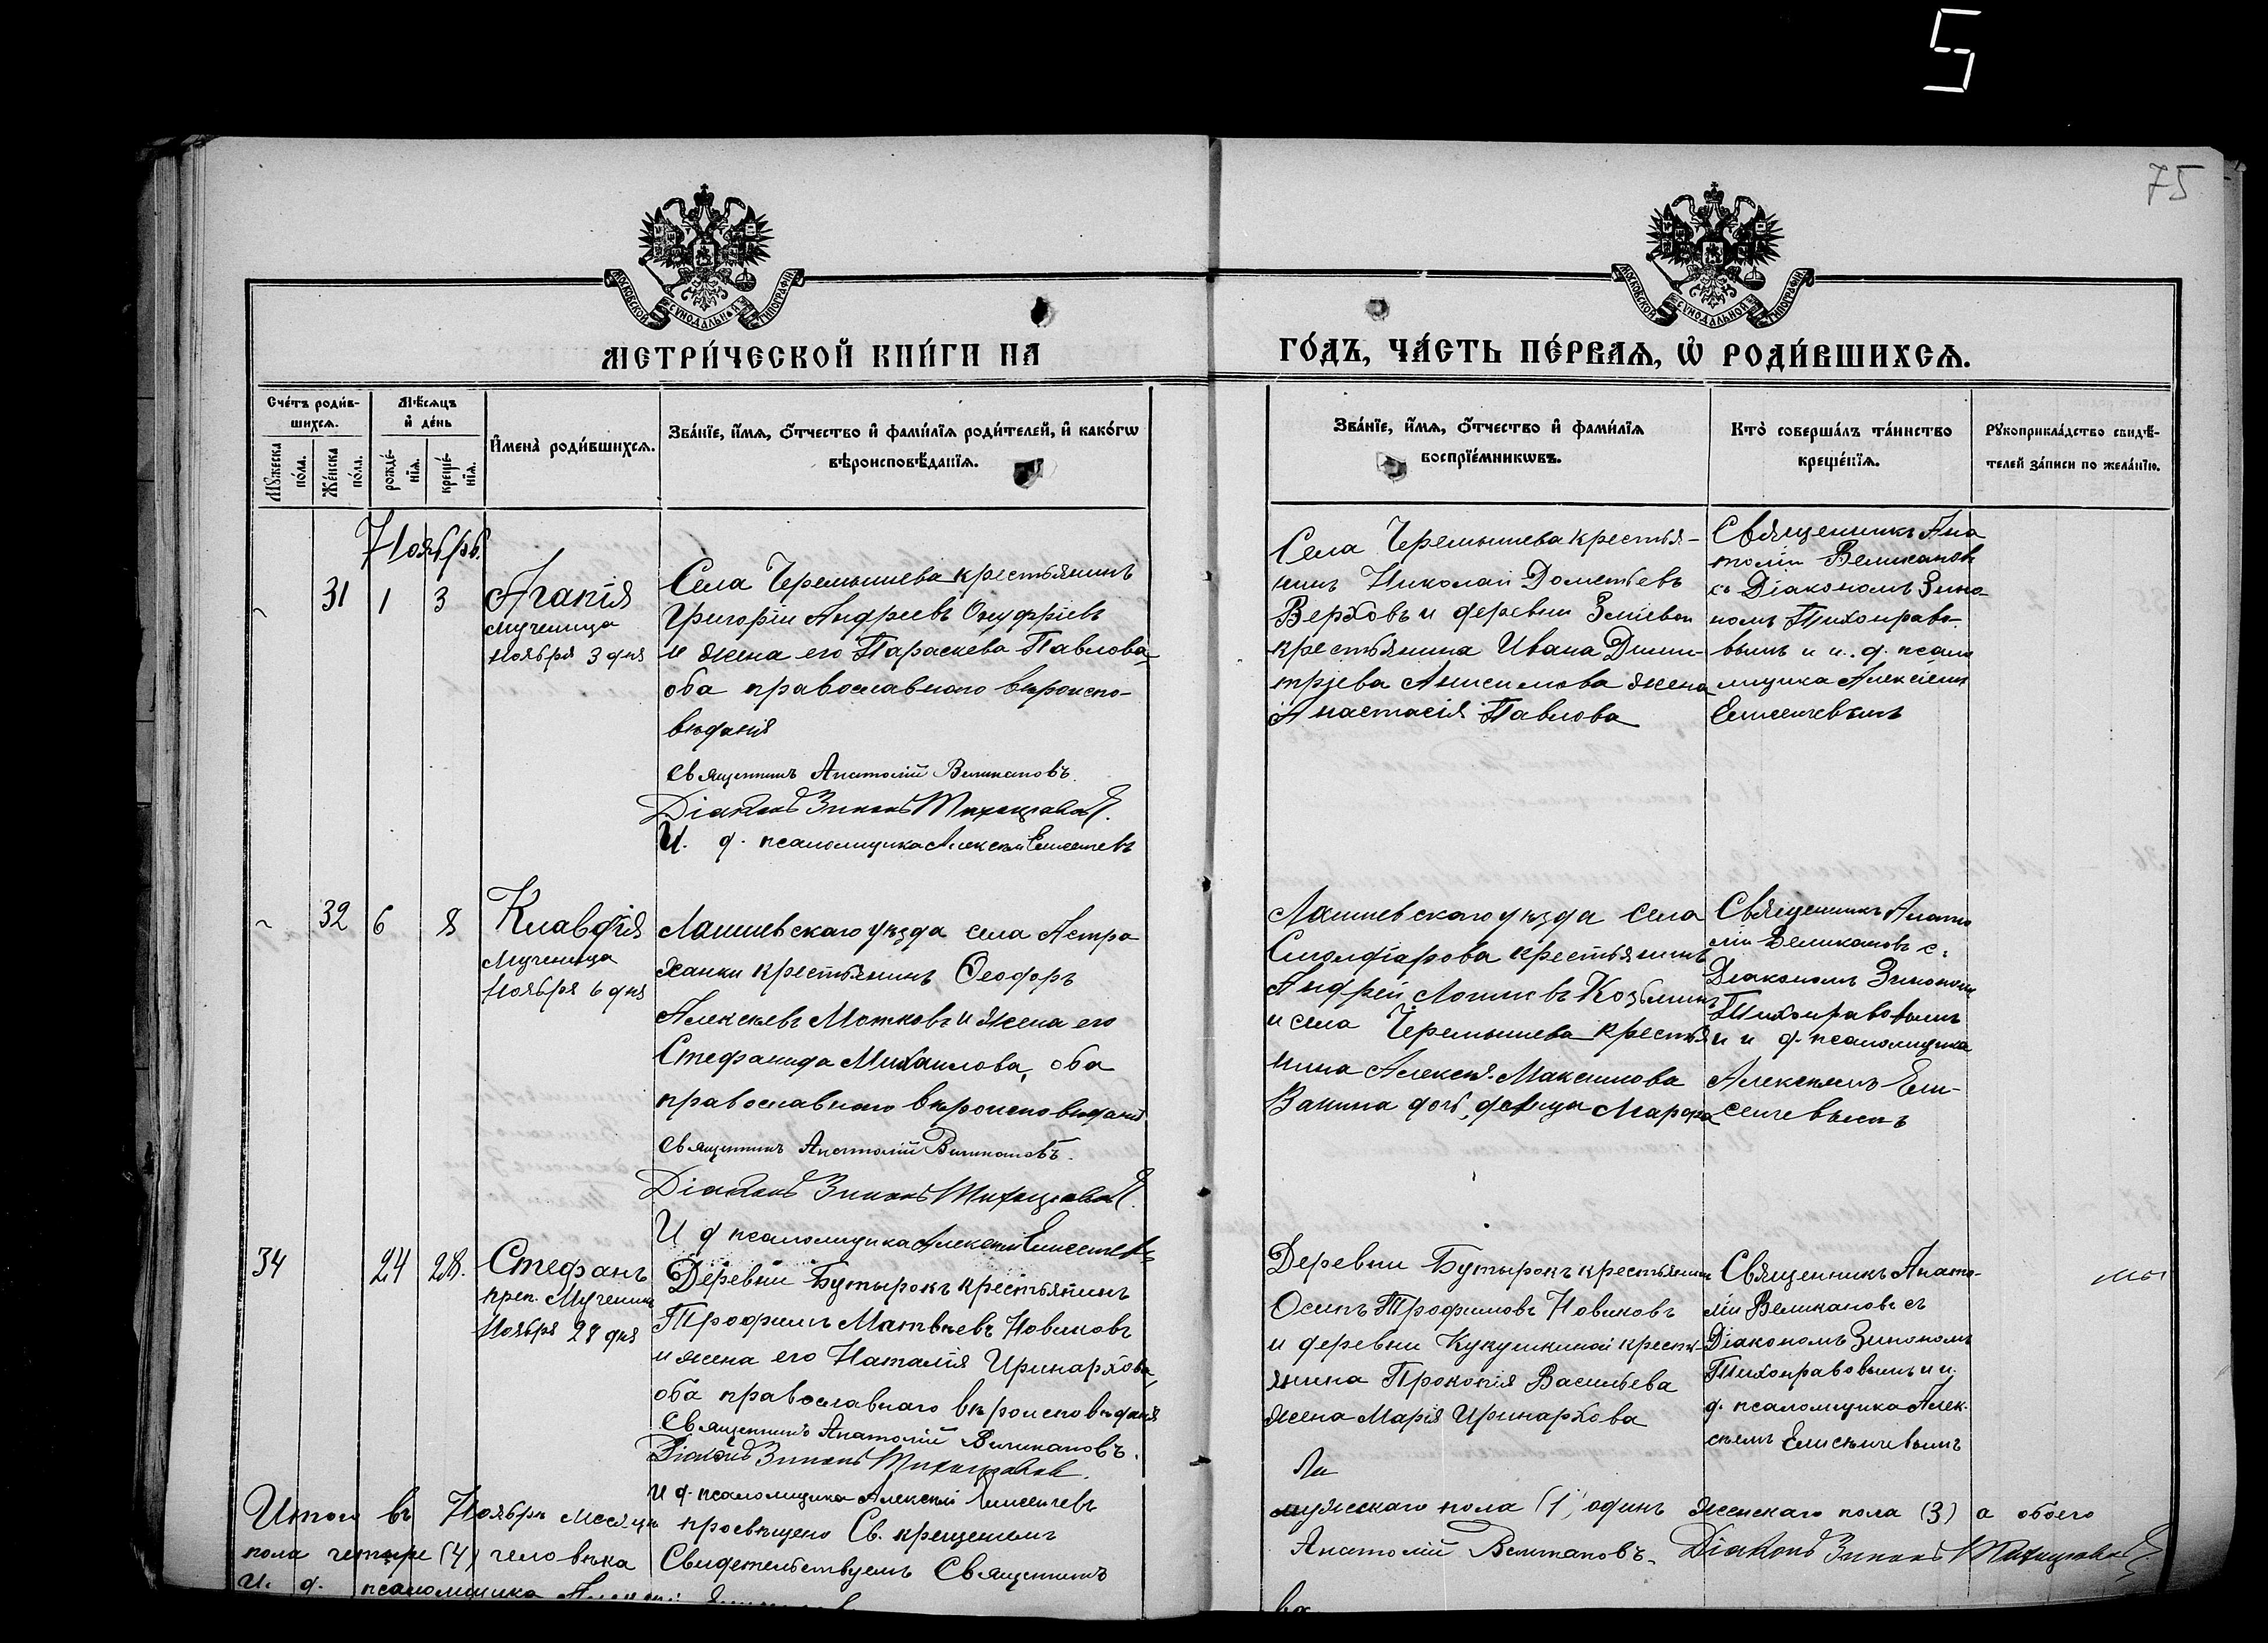 5
75
МОСКОВСКОЙ СѴНОДАЛЬНОЙ ТИПОГРАФІИ
МОСКОВСКОЙ СѴНОДАЛЬНОЙ ТИПОГРАФІИ
МЕТРИ́ЧЕСКОЙ КНИ́ГИ НА
ГО́ДЪ, ЧА́СТЬ ПЕ́РВАѦ, Ѡ҆ РОДИ́ВШИХСѦ.
Сче́тъ роди́в-
шихсѧ.
Мꙋ́жеска по́ла.
Же́нска по́ла.
Мѣ́сѧцъ
и҆ де́нь
рожде́-
нїѧ.
креще́-
нїѧ.
И҆мена̀ роди́вшихсѧ.
Зва́нїе, и҆́мѧ, ѻ҆́тчество и҆ фами́лїѧ роди́телей, и҆ како́гѡ
вѣроисповѣ́данїѧ.
Зва́нїе, и҆́мѧ, ѻ҆́тчество и҆ фами́лїѧ
воспрїе́мникѡвъ.
Кто̀ соверша́лъ та́инство
креще́нїѧ.
Рꙋкоприкла́дство свидѣ́-
телей за́писи по жела́нїю.
Ноябрь
31 1 3
Агапія
мученица
Ноября 3 дня
Села Черемышева крестьянинъ
Григорій Андреевъ Онуфріевъ
и жена его Параскева Павлова
оба православнаго вѣроиспо-
вѣданія
Священникъ Анатолій Великановъ.
Діаконъ Зинонъ Тихонравовъ.
И. д. псаломщика Алексѣй Елисеичевъ
Села Черемышева крестья-
нинъ Николай Дометьевъ
Верховъ и деревни Зміевой
крестьянина Ивана Дими-
тріева Анисимова жена
Анастасія Павлова
Священникъ Ана
толій Великановъ
съ Діакономъ Зино-
номъ Тихонраво-
вымъ и и. д. псало
мщика Алексѣемъ
Елисеичевымъ
32 6 8
Клавдія
Мученица
Ноября 6 дня
Лаишевскаго уѣзда села Астра
ханки крестьянинъ Ѳеодоръ
Алексѣевъ Мотковъ и жена его
Стефанида Михаилова, оба
православнаго вѣроисповѣданія
Священникъ Анатолій Великановъ.
Діаконъ Зинонъ Тихонравовъ.
И д псаломщика Алексѣй Елисеичевъ
Лаишевскаго уѣзда села
крестьянинъ
Андрей Козьминъ
и села Черемышева крестья
нина Алексѣя Максимова
Ванина дочь, девица Марфа
Священникъ Анато
лій Великановъ съ
Діакономъ Зинономъ
Тихонравовымъ
и и д. псаломщика
Алексѣемъ Ели-
сеичевымъ
34 24 28.
Стефанъ
преп. Мученикъ
Ноября 28 дня
Деревни Бутырокъ крестьянинъ
Трофимъ Матвѣевъ Новиковъ
и жена его Наталія Иринархова,
оба православнаго вѣроисповѣданія
Священникъ Анатолій Великановъ.
Діаконъ Зинонъ Тихонравовъ.
И д. псаломщика Алексѣй Елисеичевъ
Деревни Бутырокъ крестьянинъ
Осипъ Трофимовъ Новиковъ
и деревни Кукушкиной кресть-
янина Прокопія Васильева
жена Марія Иринархова
Священникъ Анато-
лій Великановъ съ
Діакономъ Зинономъ
Тихонравовымъ и и.
д. псаломщика Алек-
сѣемъ Елисѣичевымъ
Итого въ Ноябрѣ месяцѣ просвѣщено Св. крещеніемъ мужескаго пола (1) одинъ женскаго пола (3) а обоего
пола четыре (4) человѣка Свидетельствуемъ Священникъ Анатолій Великановъ. Діаконъ Зинонъ Тихонравовъ
И. д. псаломщика